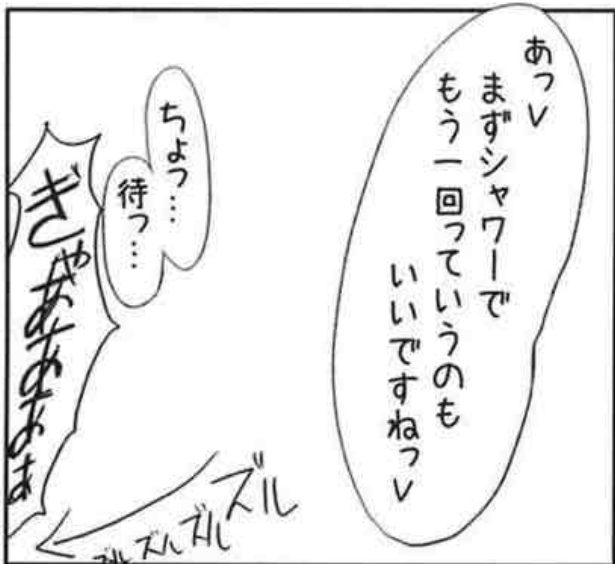 あっ♥
まずシャワーで
もう一回っていうのも
いいですねっ♥
ちょっ…
待っ…
ぎゃあああぁ
ズル
ズル
ズル
ズル